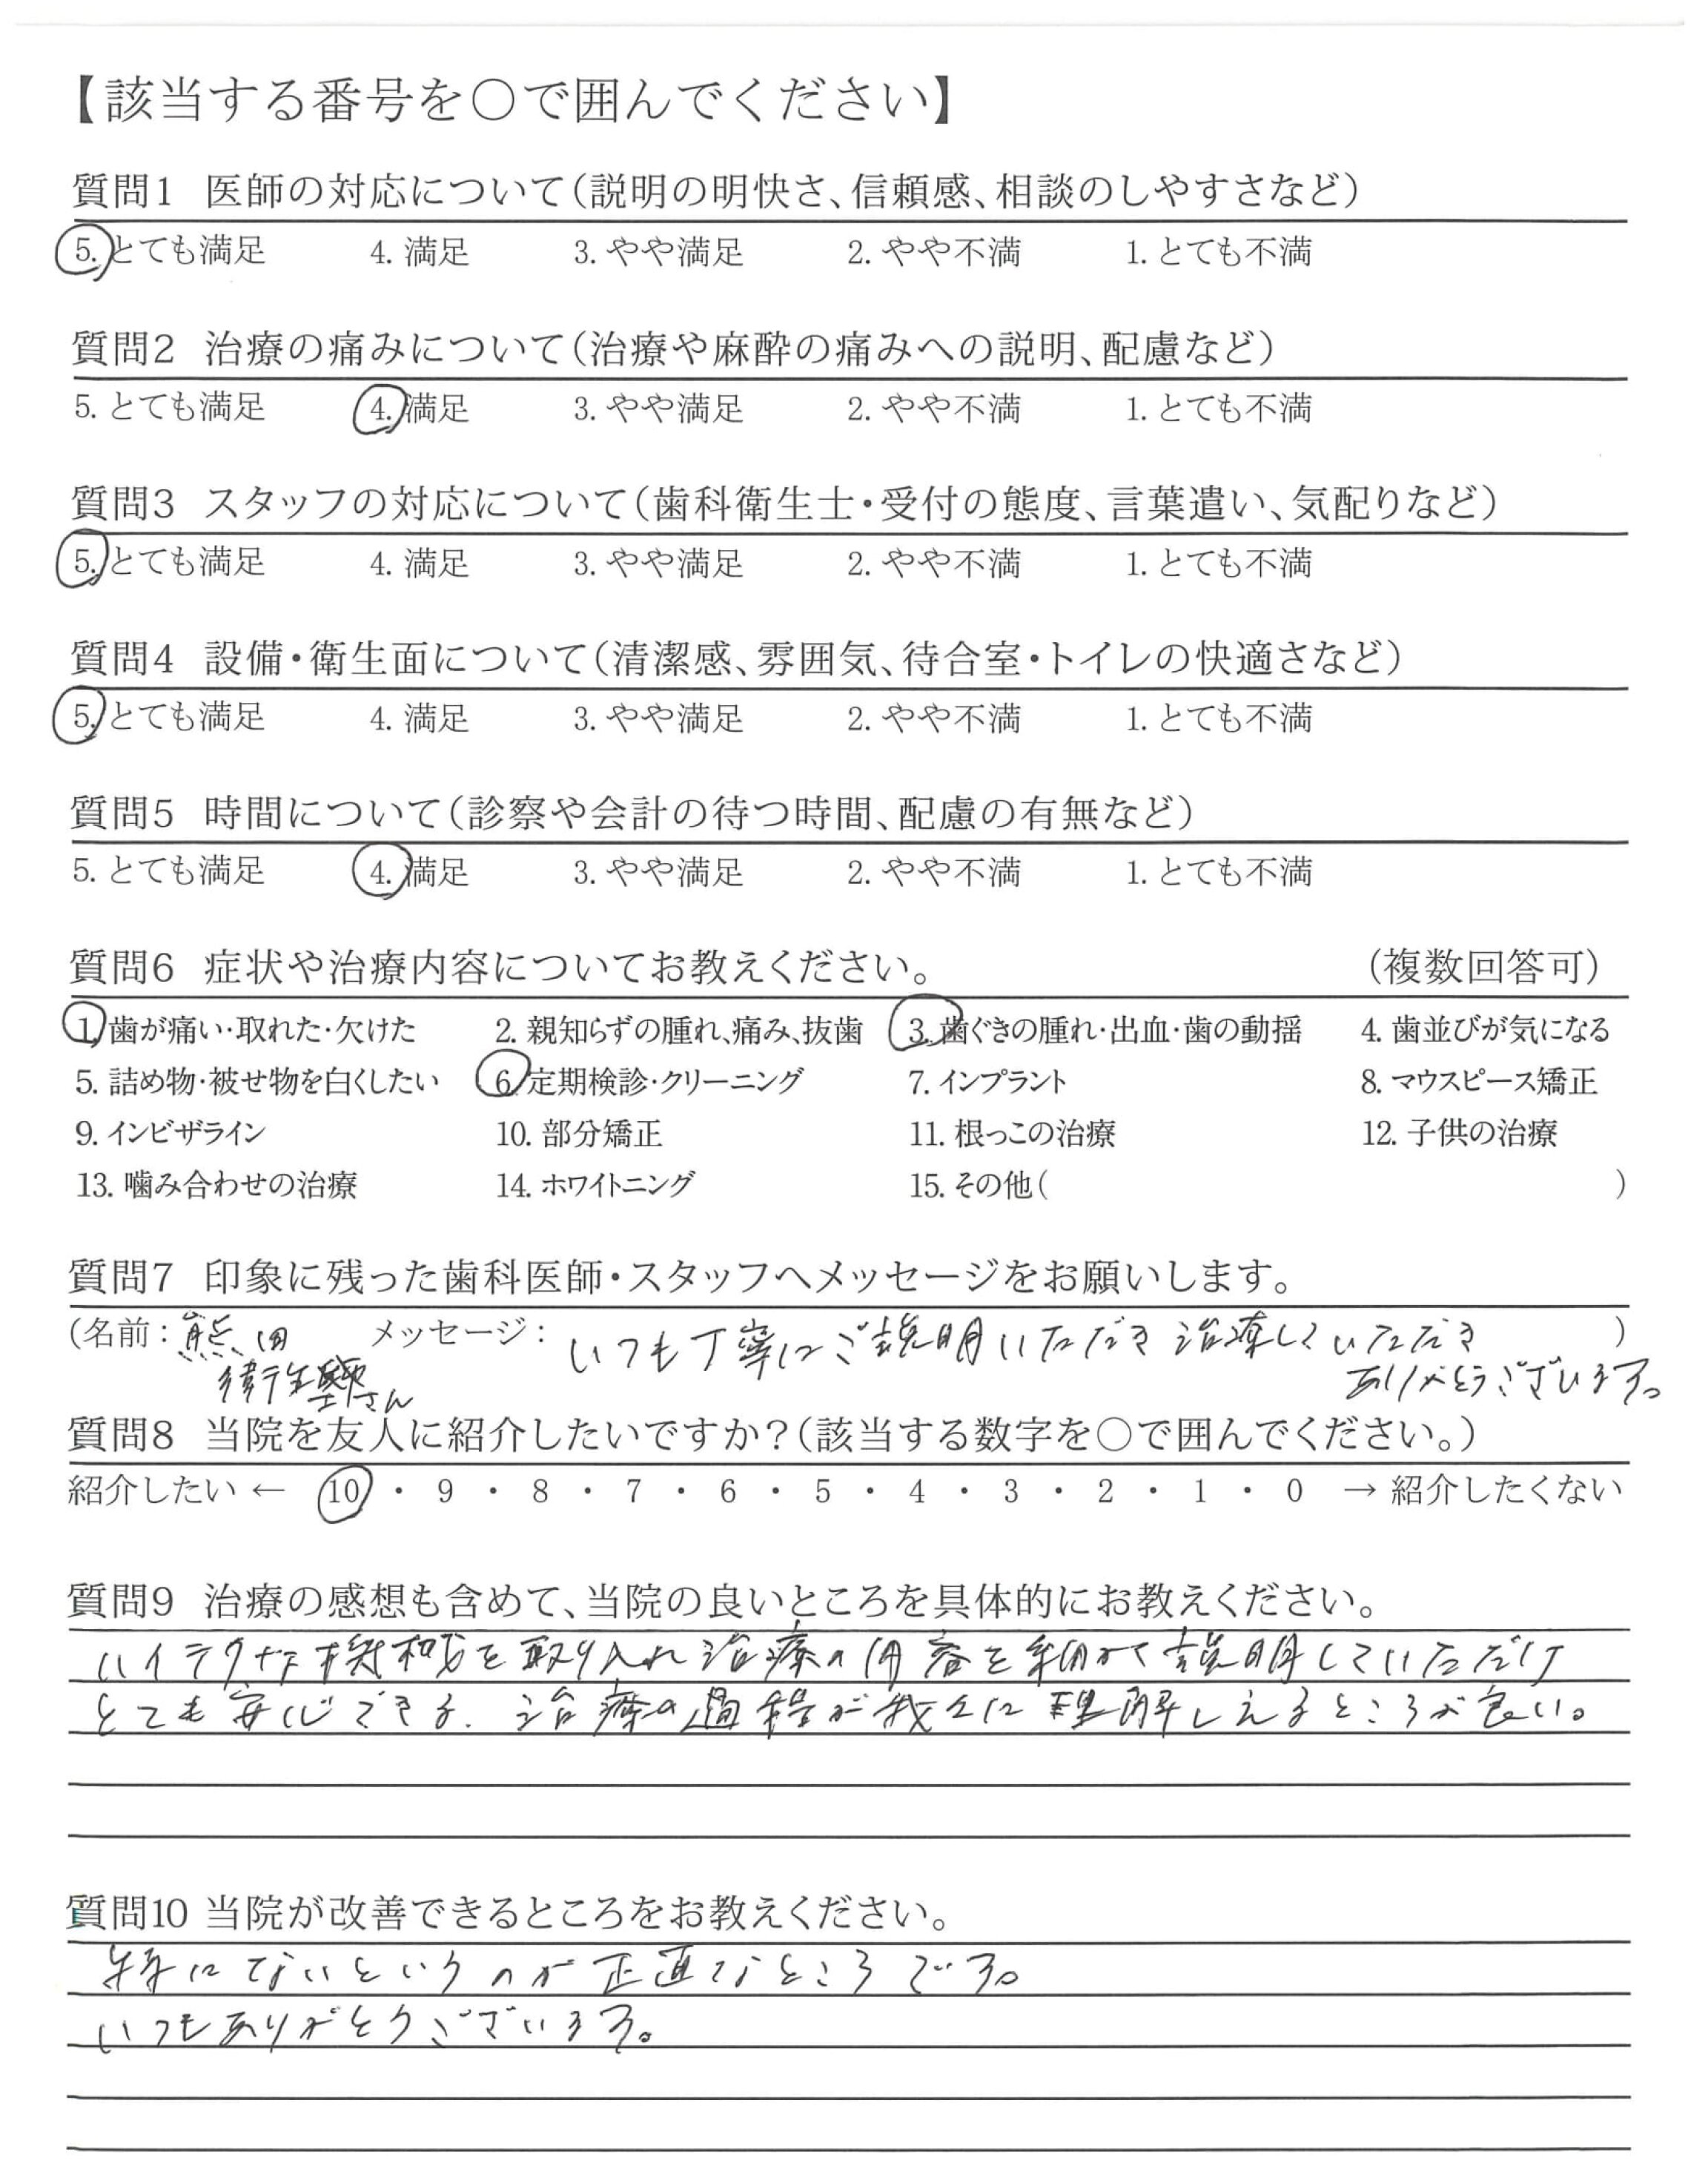 【該当する番号を○で囲んでください】
質問1 医師の対応について(説明の明快さ、信頼感、相談のしやすさなど)
5. とても満足 4. 満足 3. やや満足 2. やや不満 1. とても不満
質問2 治療の痛みについて(治療や麻酔の痛みへの説明、配慮など)
5. とても満足 4. 満足 3. やや満足 2. やや不満 1. とても不満
質問3 スタッフの対応について(歯科衛生士・受付の態度、言葉遣い、気配りなど)
5. とても満足 4. 満足 3. やや満足 2. やや不満 1. とても不満
質問4 設備・衛生面について(清潔感、雰囲気、待合室・トイレの快適さなど)
5. とても満足 4. 満足 3. やや満足 2. やや不満 1. とても不満
質問5 時間について(診察や会計の待つ時間、配慮の有無など)
5. とても満足 4. 満足 3. やや満足 2. やや不満 1. とても不満
質問6 症状や治療内容についてお教えください。 (複数回答可)
1. 歯が痛い・取れた・欠けた 2. 親知らずの腫れ、痛み、抜歯 3. 歯ぐきの腫れ・出血・歯の動揺 4. 歯並びが気になる
5. 詰め物・被せ物を白くしたい 6. 定期検診・クリーニング 7. インプラント 8. マウスピース矯正
9. インビザライン 10. 部分矯正 11. 根っこの治療 12. 子供の治療
13. 噛み合わせの治療 14. ホワイトニング 15. その他( )
質問7 印象に残った歯科医師・スタッフへメッセージをお願いします。
(名前: 熊田 メッセージ: いつも丁寧にご説明いただき治療していただき )
衛生士さん ありがとうございます。
質問8 当院を友人に紹介したいですか?(該当する数字を○で囲んでください。)
紹介したい ← 10 ・ 9 ・ 8 ・ 7 ・ 6 ・ 5 ・ 4 ・ 3 ・ 2 ・ 1 ・ 0 → 紹介したくない
質問9 治療の感想も含めて、当院の良いところを具体的にお教えください。
ハイテクな機械を取り入れ治療の内容を細かく説明していただけ
とても安心できる。治療の過程が我々に理解しえるところが良い。
質問10 当院が改善できるところをお教えください。
特にないというのが正直なところです。
いつもありがとうございます。